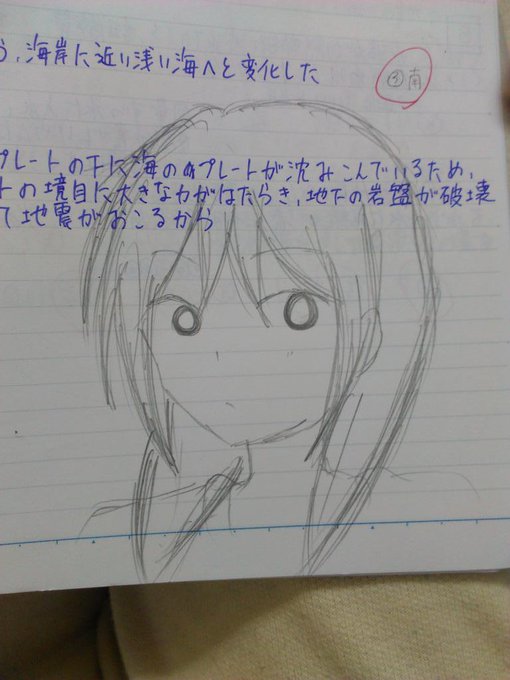 う、海岸に近い浅い海へと変化した
③南
プレートの下に海のプレートが沈みこんでいるため、
トの境目に大きな力がはたらき、地下の岩盤が破壊
て地震がおこるから